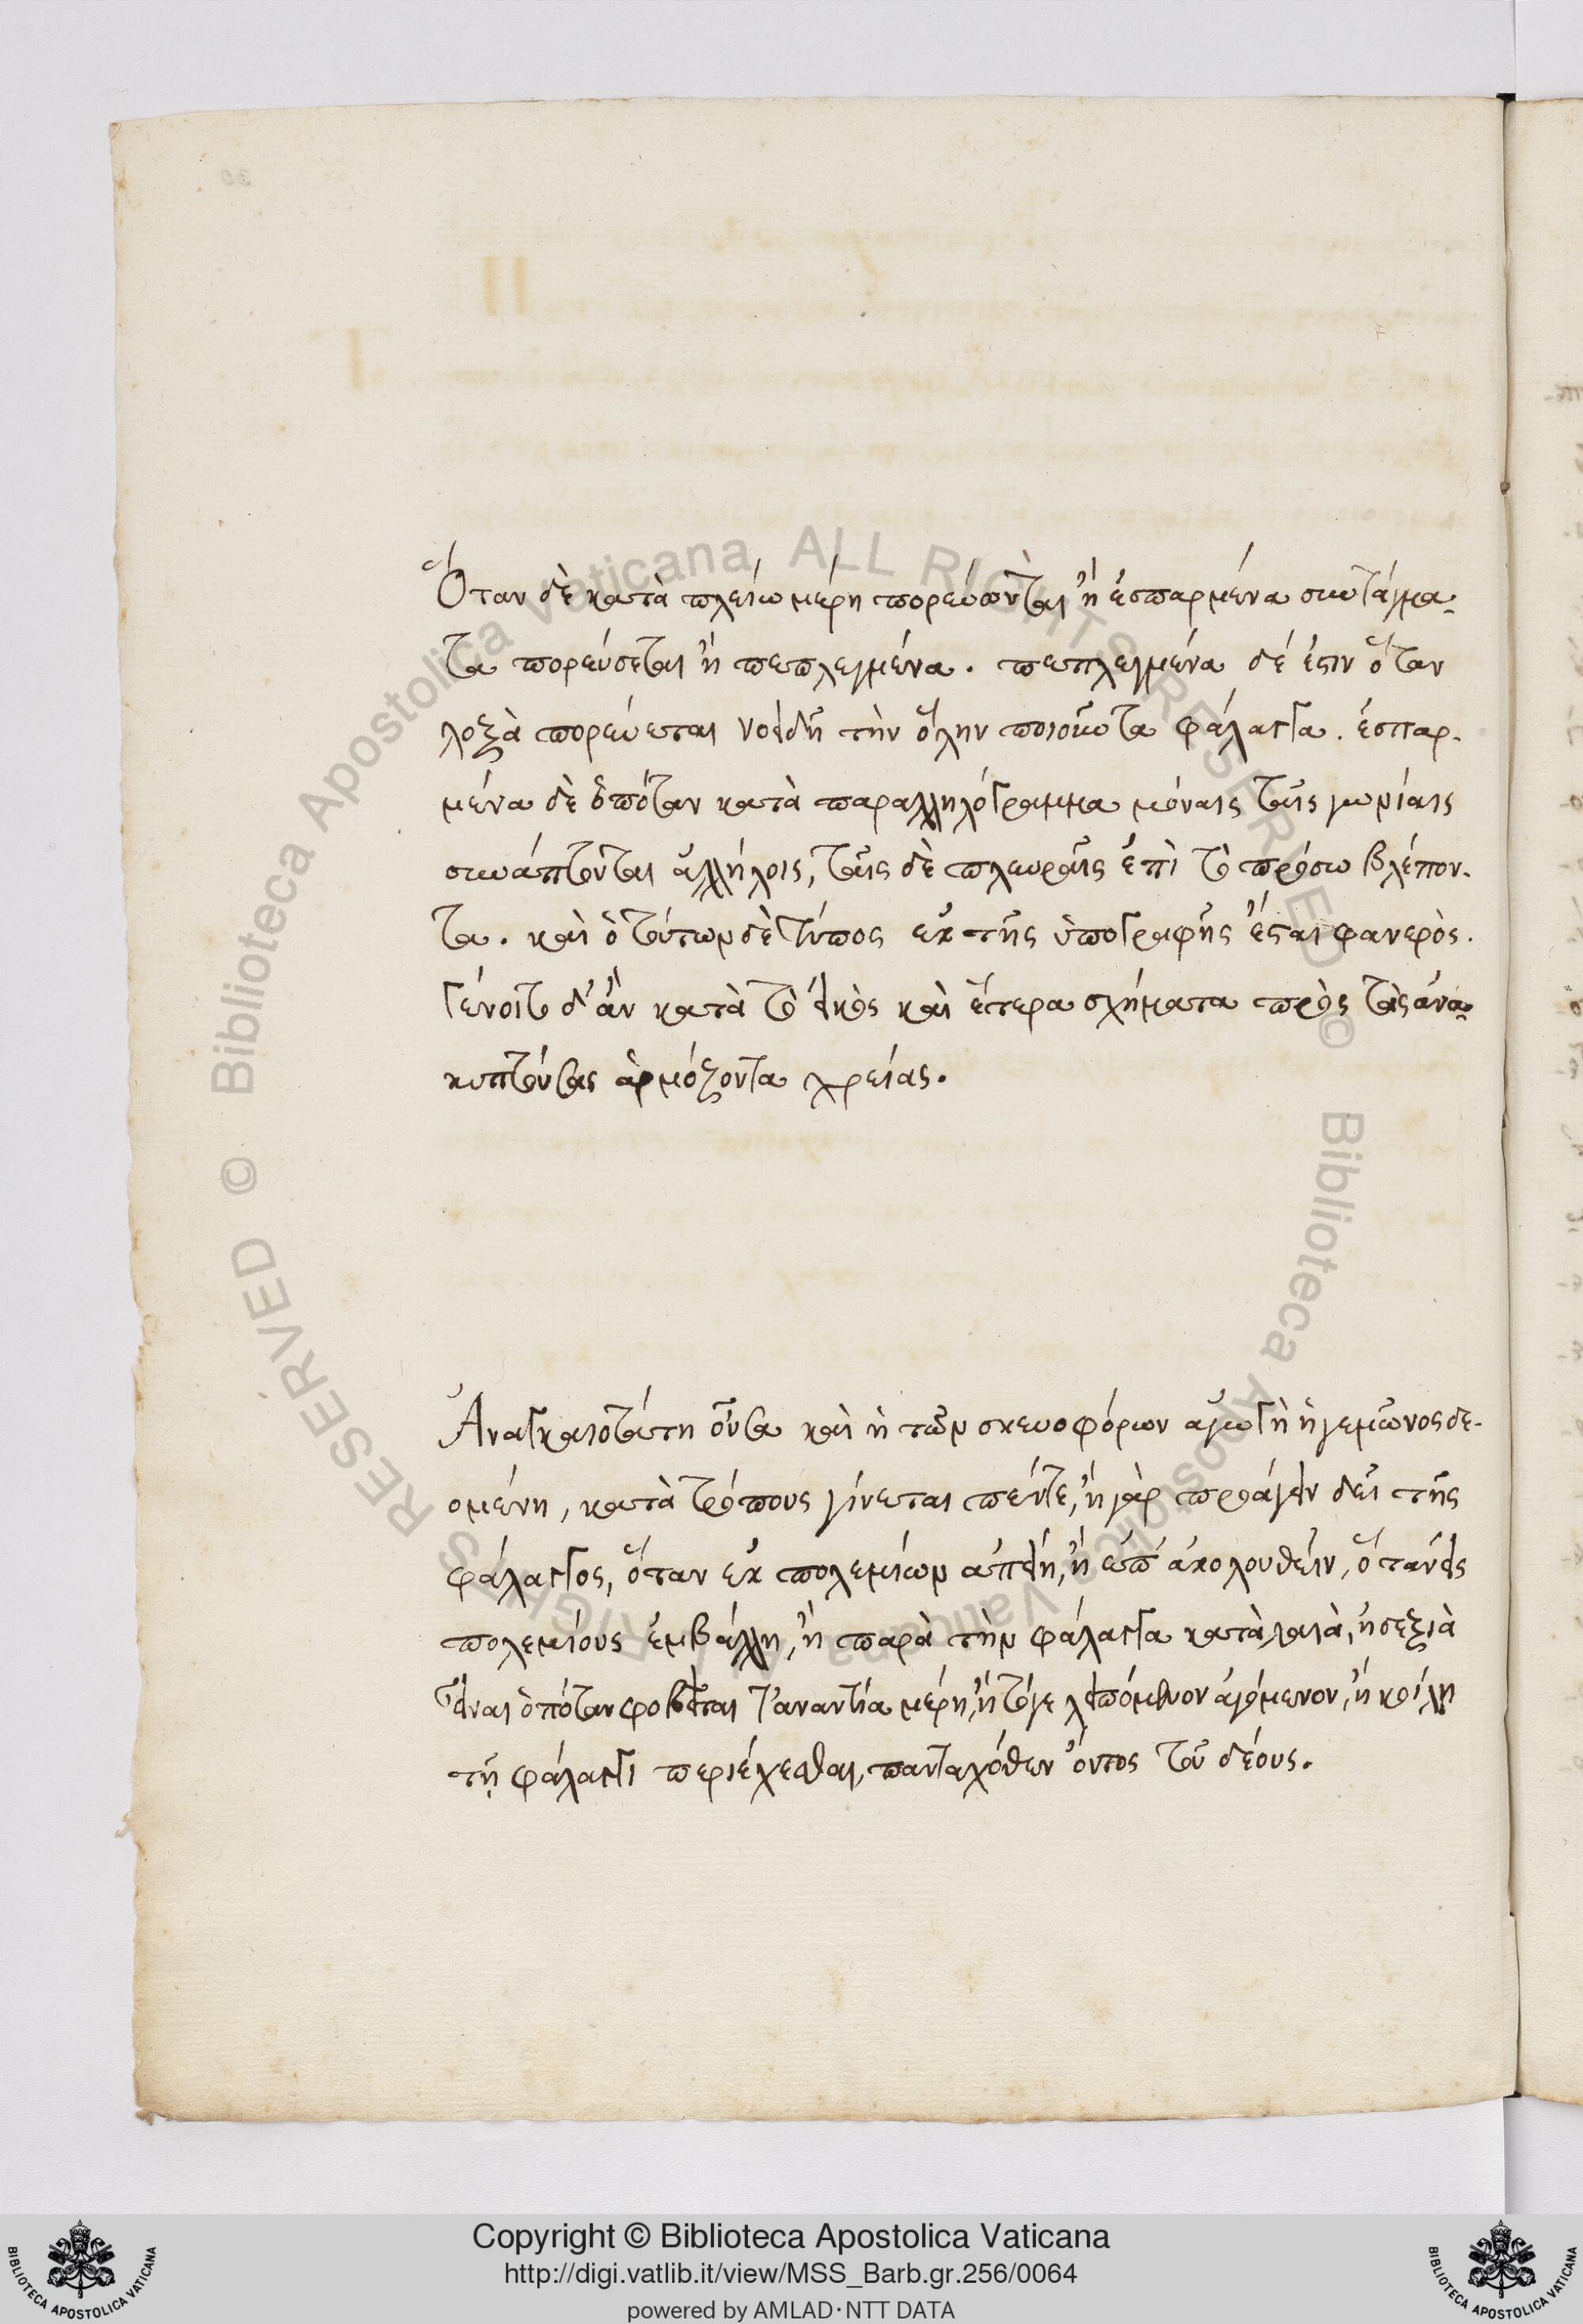 Ὅταν δὲ κατὰ πλείω μέρη πορεύωνται ἢ ἐσπαρμένα συντάγμα-
τα πορεύσεται ἢ πεπλεγμένα. πεπλεγμένα δέ ἐστιν ὅταν
λοξὰ πορεύεται τὴν ὅλην ποιοῦντα φάλαγγα. ἐσπαρ-
μένα δὲ ὁπόταν κατὰ παραλληλόγραμμα μόναις ταῖς γωνίαις
συνάπτονται ἀλλήλοις, ταῖς δὲ πλευραῖς ἐπὶ τὸ πρόσω βλέπον-
τα. καὶ ὁ τούτων δὲ τύπος ἐκ τῆς ὑπογραφῆς ἔσται φανερός.
Γένοιτο δ' ἂν κατὰ τὸ εἰκὸς καὶ ἕτερα σχήματα πρὸς τὰς ἀνα-
κυπτούσας ἁρμόζοντα χρείας.
Ἀναγκαιοτάτη οὖσα καὶ ἡ τῶν σκευοφόρων ἀγωγὴ ἡγεμῶνος δε-
ομένη, κατὰ τρόπους γίνεται πέντε, ἢ γὰρ προάγειν δεῖ τῆς
φάλαγγος, ὅταν ἐκ πολεμίων ἀπείη, ἢ ἐπακολουθεῖν, ὅταν εἰς
πολεμίους ἐμβάλλη, ἢ παρὰ τὴν φάλαγγα κατὰ λαιὰ, ἢ δεξιὰ
εἶναι ὁπόταν φοβεῖται τἀναντία μέρη, ἢ τόγε λειπόμενον ἀγόμενον, ἢ κοίλη
τῇ φάλαγγι περιέχεσθαι, πανταχόθεν ὄντος τοῦ δέους.
Copyright © Biblioteca Apostolica Vaticana
http://digi.vatlib.it/view/MSS_Barb.gr.256/0064
powered by AMLAD·NTT DATA